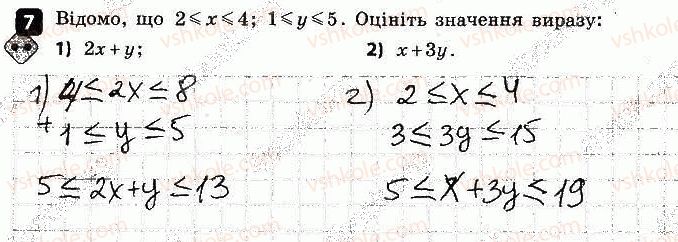 7 Відомо, що 2 ⩽ x ⩽ 4; 1 ⩽ y ⩽ 5. Оцініть значення виразу:
1) 2x + y; 2) x + 3y.
1) 4 ≤ 2x ≤ 8
+ 1 ≤ y ≤ 5
5 ≤ 2x+y ≤ 13
2) 2 ≤ x ≤ 4
3 ≤ 3y ≤ 15
5 ≤ x+3y ≤ 19